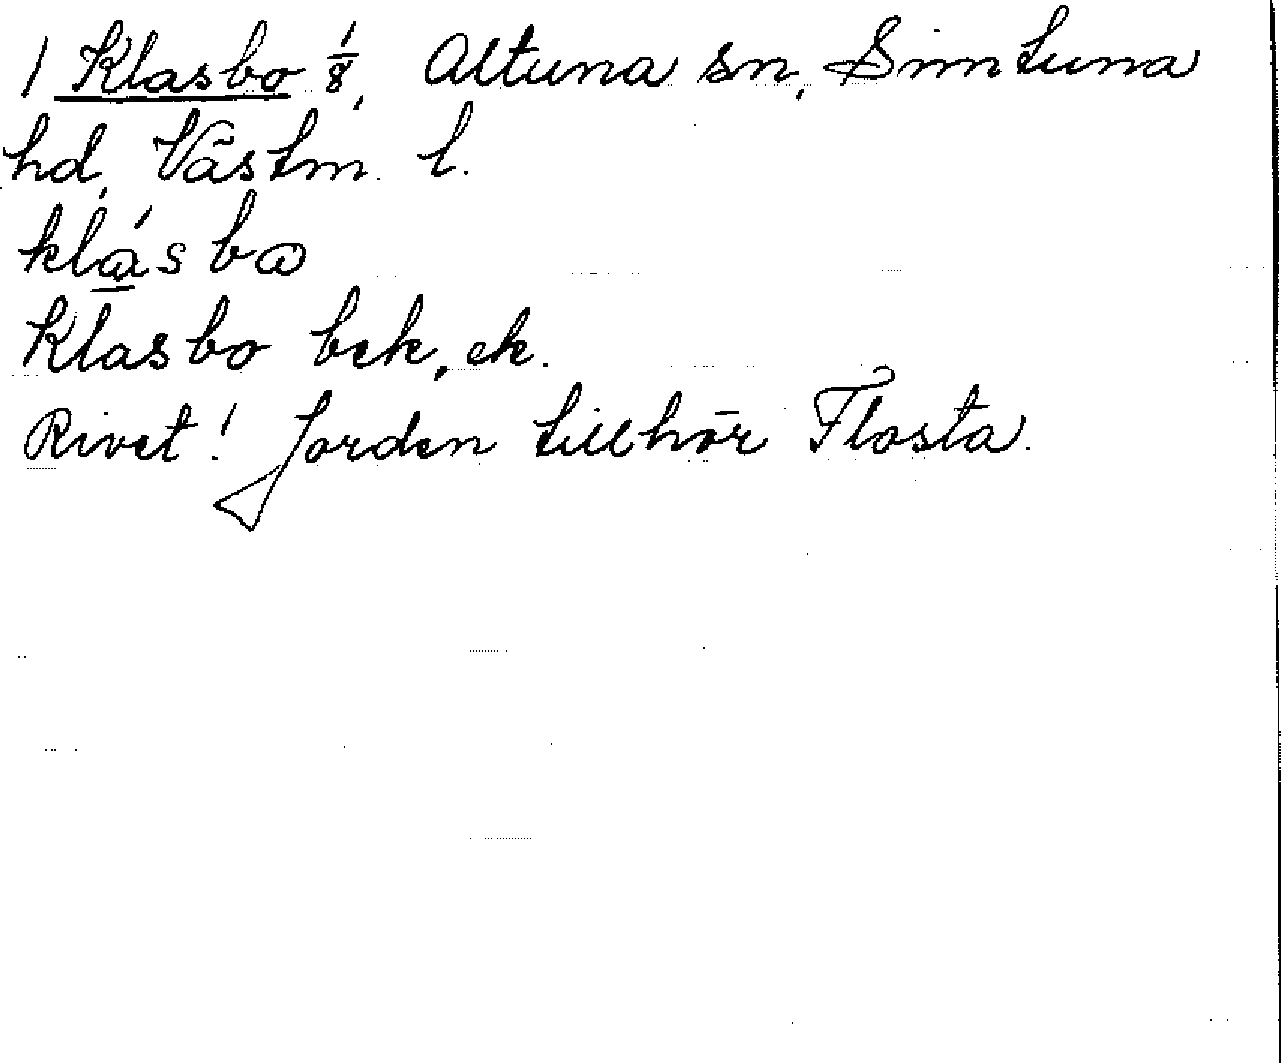 1 Klasbo 1/8, Altuna sn, Simtuna
hd, Västm. l.
kla̱´sbɷ
Klasbo bek, ek.
Rivet! Jorden tillhör Flosta.